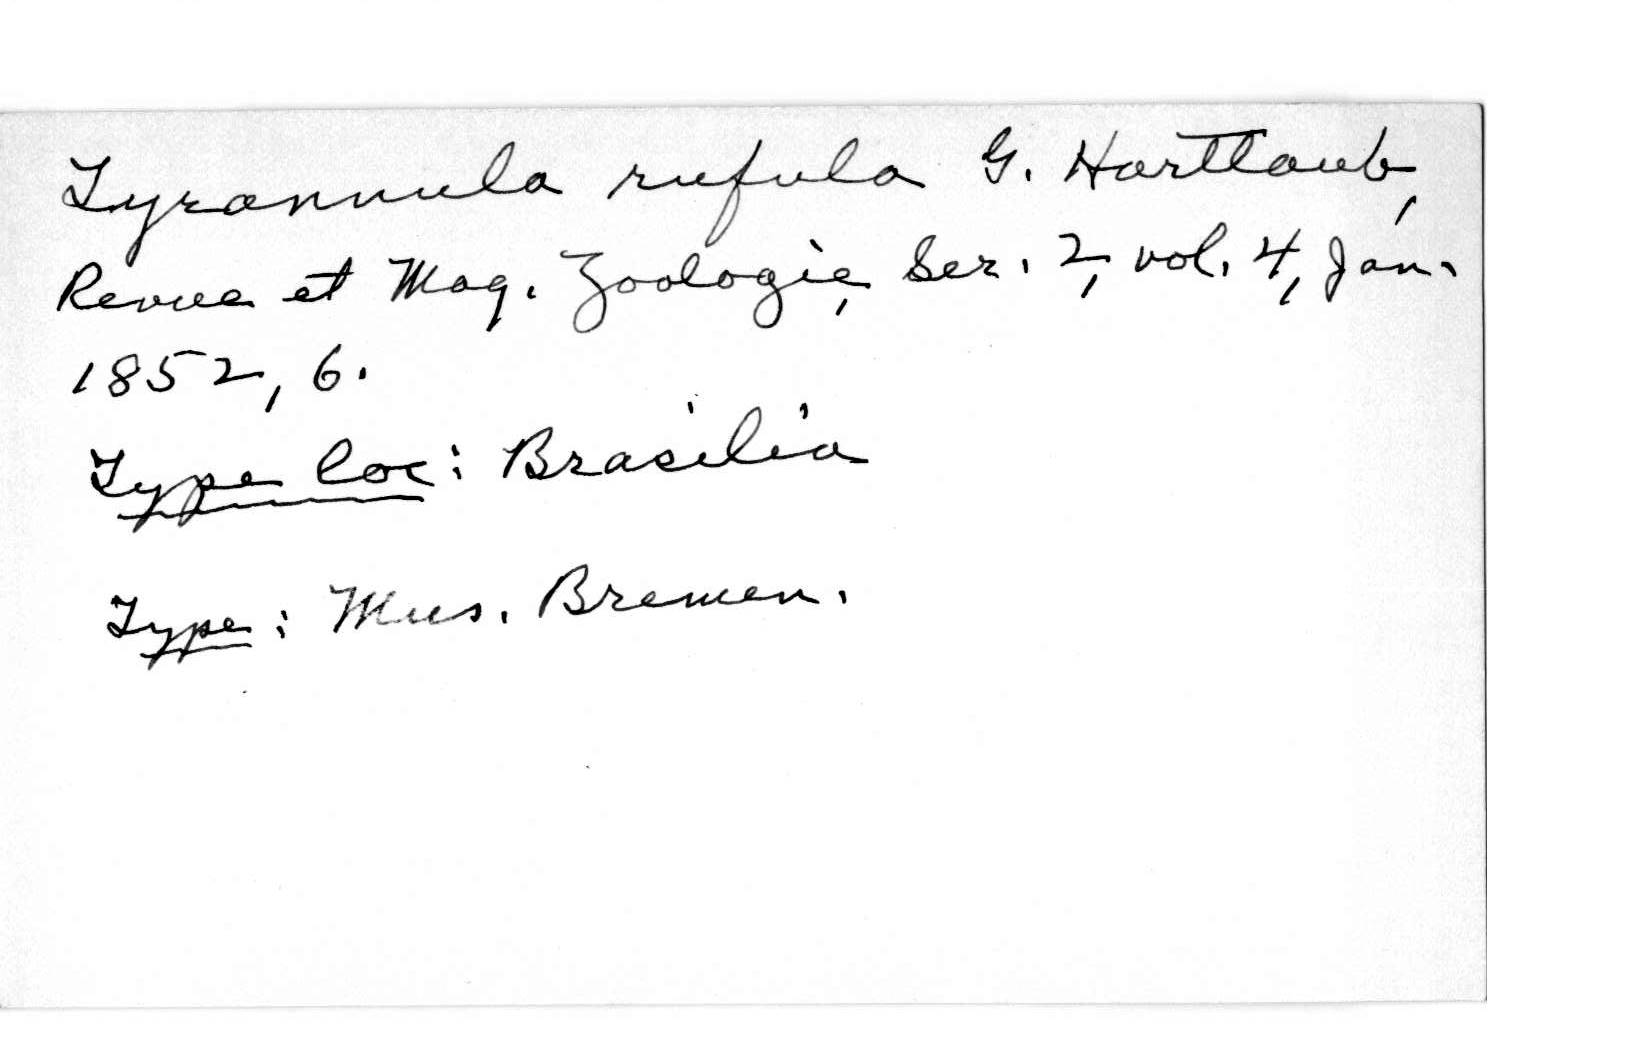 Tyrannula rufula G. Hartlaub,
Revue et Mag. Zoologie, Ser. 2, vol. 4, Jan.
1852, 6.
Type loc: Brasilia
Type: Mus. Bremen.